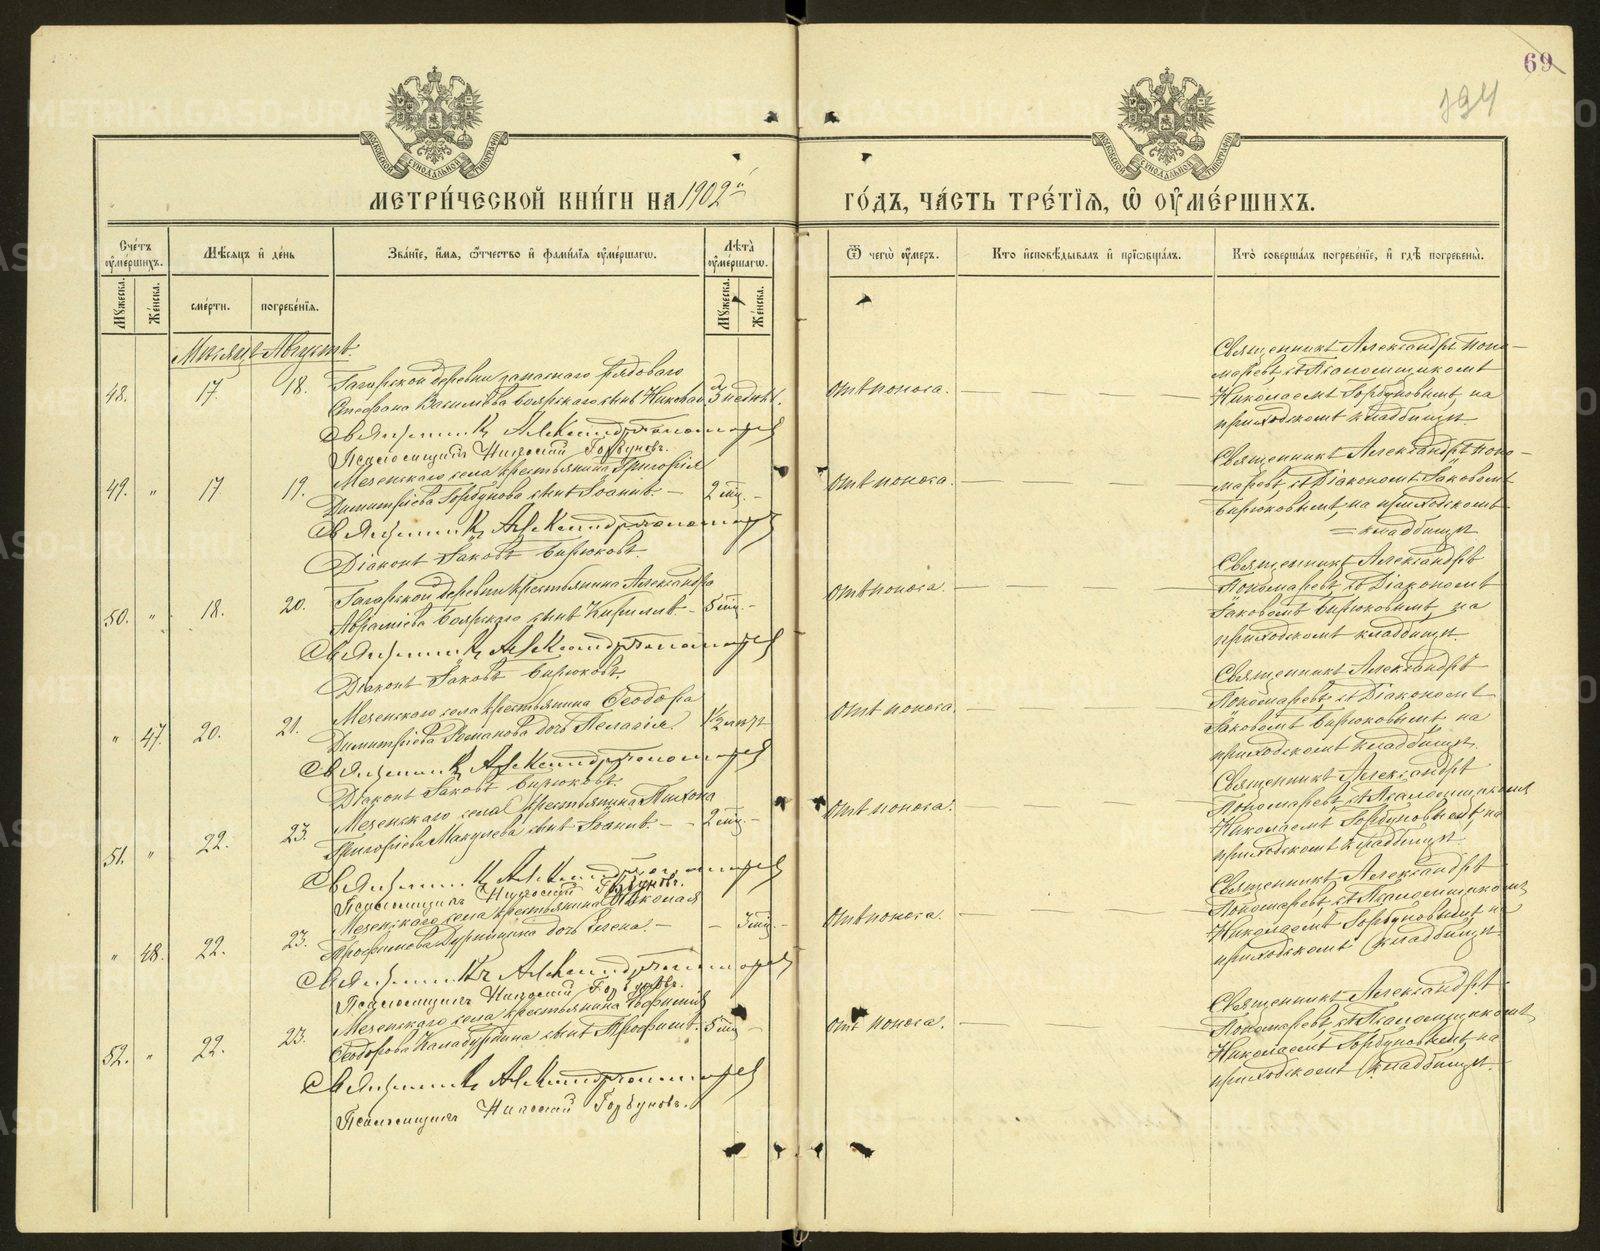 69
194
МОСКОВСКОЙ СѴНОДАЛЬНОЙ ТИПОГРАФІИ
МОСКОВСКОЙ СѴНОДАЛЬНОЙ ТИПОГРАФІИ
МЕТРИ́ЧЕСКОЙ КНИ́ГИ НА 1902й ГО́ДЪ, ЧА́СТЬ ТРЕ́ТІѦ, Ѡ ОУМЕ́РШИХЪ.
Сче́тъ оумершихъ.
Мꙋжеска.
Же́нска.
Мѣ́сяцъ и де́нь
сме́рти.
погребе́нїѧ.
Зва́нїе, и́мѧ, ѻ҆́тчество и фами́лїѧ оумершагѡ.
Лѣта̀ оумершагѡ.
Мꙋжеска.
Же́нска.
Ѿ чегѡ̀ оумеръ.
Кто̀ исповѣ́дывалъ и прїѡбща́лъ.
Кто̀ соверша́лъ погребе́нїе, и гдѣ̀ погребены̀.
Мѣсяцъ Августъ.
48. 17. 18. Гагарской деревни запаснаго рядоваго
Стефана Васильева Боярскаго сынъ Николай 3 недѣл. отъ поноса.
Священникъ Александръ Пономаревъ
Псаломщикъ Николай Горбуновъ.
Священникъ Александръ Поно-
маревъ съ Псаломщикомъ
Николаемъ Горбуновымъ на
приходскомъ кладбищѣ
49. " 17 19. Мезенскаго села крестьянина Григорія
Димитріева Горбунова сынъ Іоаннъ. 2 мц. отъ поноса.
Священникъ Александръ Пономаревъ
Діаконъ Іаковъ Бирюковъ.
Священникъ Александръ Поно-
маревъ, съ Діакономъ Іаковомъ
Бирюковымъ, на приходскомъ
кладбищѣ
50. " 18. 20. Гагарской деревни крестьянина Александра
Авраміева Боярскаго сынъ Кириллъ 5 мц. отъ поноса.
Священникъ Александръ Пономаревъ
Діаконъ Іаковъ Бирюковъ.
Священникъ Александръ
Пономаревъ, съ Діакономъ
Іаковомъ Бирюковымъ, на
приходскомъ кладбищѣ
" 47. 20. 21. Мезенскаго села крестьянина Ѳеодора
Димитріева Романова дочь Пелагія. отъ поноса.
Священникъ Александръ Пономаревъ
Діаконъ Іаковъ Бирюковъ.
Священникъ Александръ
Пономаревъ, съ Діакономъ
Іаковомъ Бирюковымъ, на
приходскомъ кладбищѣ.
51. " 22. 23. Мезенскаго села крестьянина Тихона
Григоріева сынъ Іоаннъ. 2 мц. отъ поноса.
Священникъ Александръ Пономаревъ
Псаломщикъ Николай Горбуновъ.
Священникъ Александръ
Пономаревъ, съ Псаломщикомъ
Николаемъ Горбуновымъ, на
приходскомъ кладбищѣ.
" 48. 22. 23. Мезенскаго села крестьянина Николая
Трофимова дочь Елена. 3 мц. отъ поноса.
Священникъ Александръ Пономаревъ
Псаломщикъ Николай Горбуновъ.
Священникъ Александръ
Пономаревъ, съ Псаломщикомъ
Николаемъ Горбуновымъ на
приходскомъ кладбищѣ.
52. " 22. 23. Мезенскаго села крестьянина
Ѳеодорова сынъ Трофимъ. 5 мц. отъ поноса.
Священникъ Александръ Пономаревъ
Псаломщикъ Николай Горбуновъ.
Священникъ Александръ
Пономаревъ, съ Псаломщикомъ
Николаемъ Горбуновымъ, на
приходскомъ кладбищѣ.
METRIKI.GASO-URAL.RU